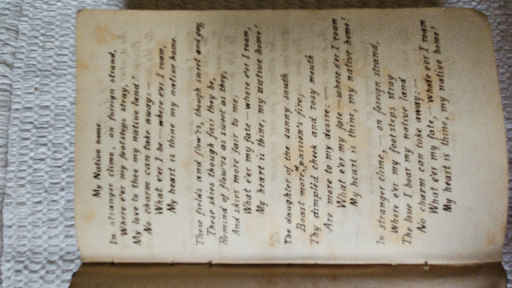 My Native home
In stranger clime, on foreign strand,
Where e'er my footsteps stray,
My love to thee my native land!
No charm can take away:—
What e'er I be—where e'er I roam,
My heart is thine my native home.
These fields and flow'rs, though sweet and gay,
These skies though fair they be,
Remind of flowers as sweet as they,
And skies more fair to me,
What e'er my fate—where e'er I roam,
My heart is thine, my native home!
The daughter of the sunny south
Boast more passion's fire;
Thy dimpled cheek and rosy mouth
Are more to my desire:—
What e'er my fate—where e'er I roam,
My heart is thine, my native home!
In stranger clime,—on foreign strand,
Where e'er my footsteps stray
The love I bear my native land
No charm can take away:—
What e'er my fate,—where e'er I roam
My heart is thine, my native home!